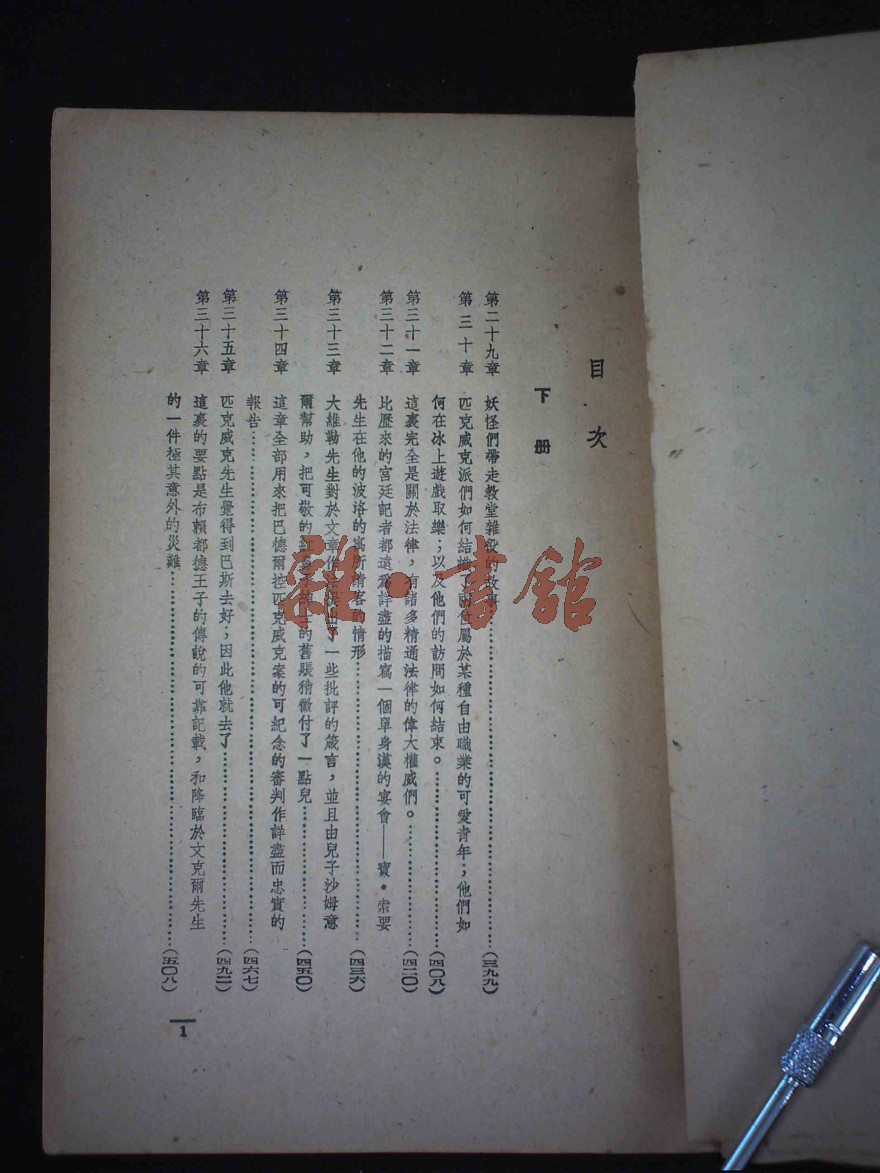 目次
下册
第二十九章 妖怪們帶走教堂雜役的故事……(三九九)
第三十章 匹克威克派們如何結識了兩位屬於某種自由職業的可愛青年；他們如
何在冰上遊戲取樂；以及他們的訪問如何結束。……(四〇八)
第三十一章 這裏完全是關於法律，有諸多精通法律的偉大權威們。……(四二〇)
第三十二章 比歷來的宮廷記者都遠爲詳盡的描寫一個單身漢的宴會——寶・索耍
先生在他的波洛的寓所請客的情形……(四三六)
第三十三章 大維勒先生對於文章作法提出了一些批評的箴言，並且由兒子沙姆意
爾幫助，把可敬的紳士的舊賬稍微付了一點兒……(四五〇)
第三十四章 這章全部用來把巴德爾控匹克威克案的可紀念的審判作詳盡而忠實的
報告……(四六七)
第三十五章 匹克威克先生覺得到巴斯去好；因此他就去了……(四九二)
第三十六章 這裏的要點是布賴都德王子的傳說的可靠記載，和降臨於文克爾先生
的一件極其意外的災難……(五〇八)
1
雜・書館